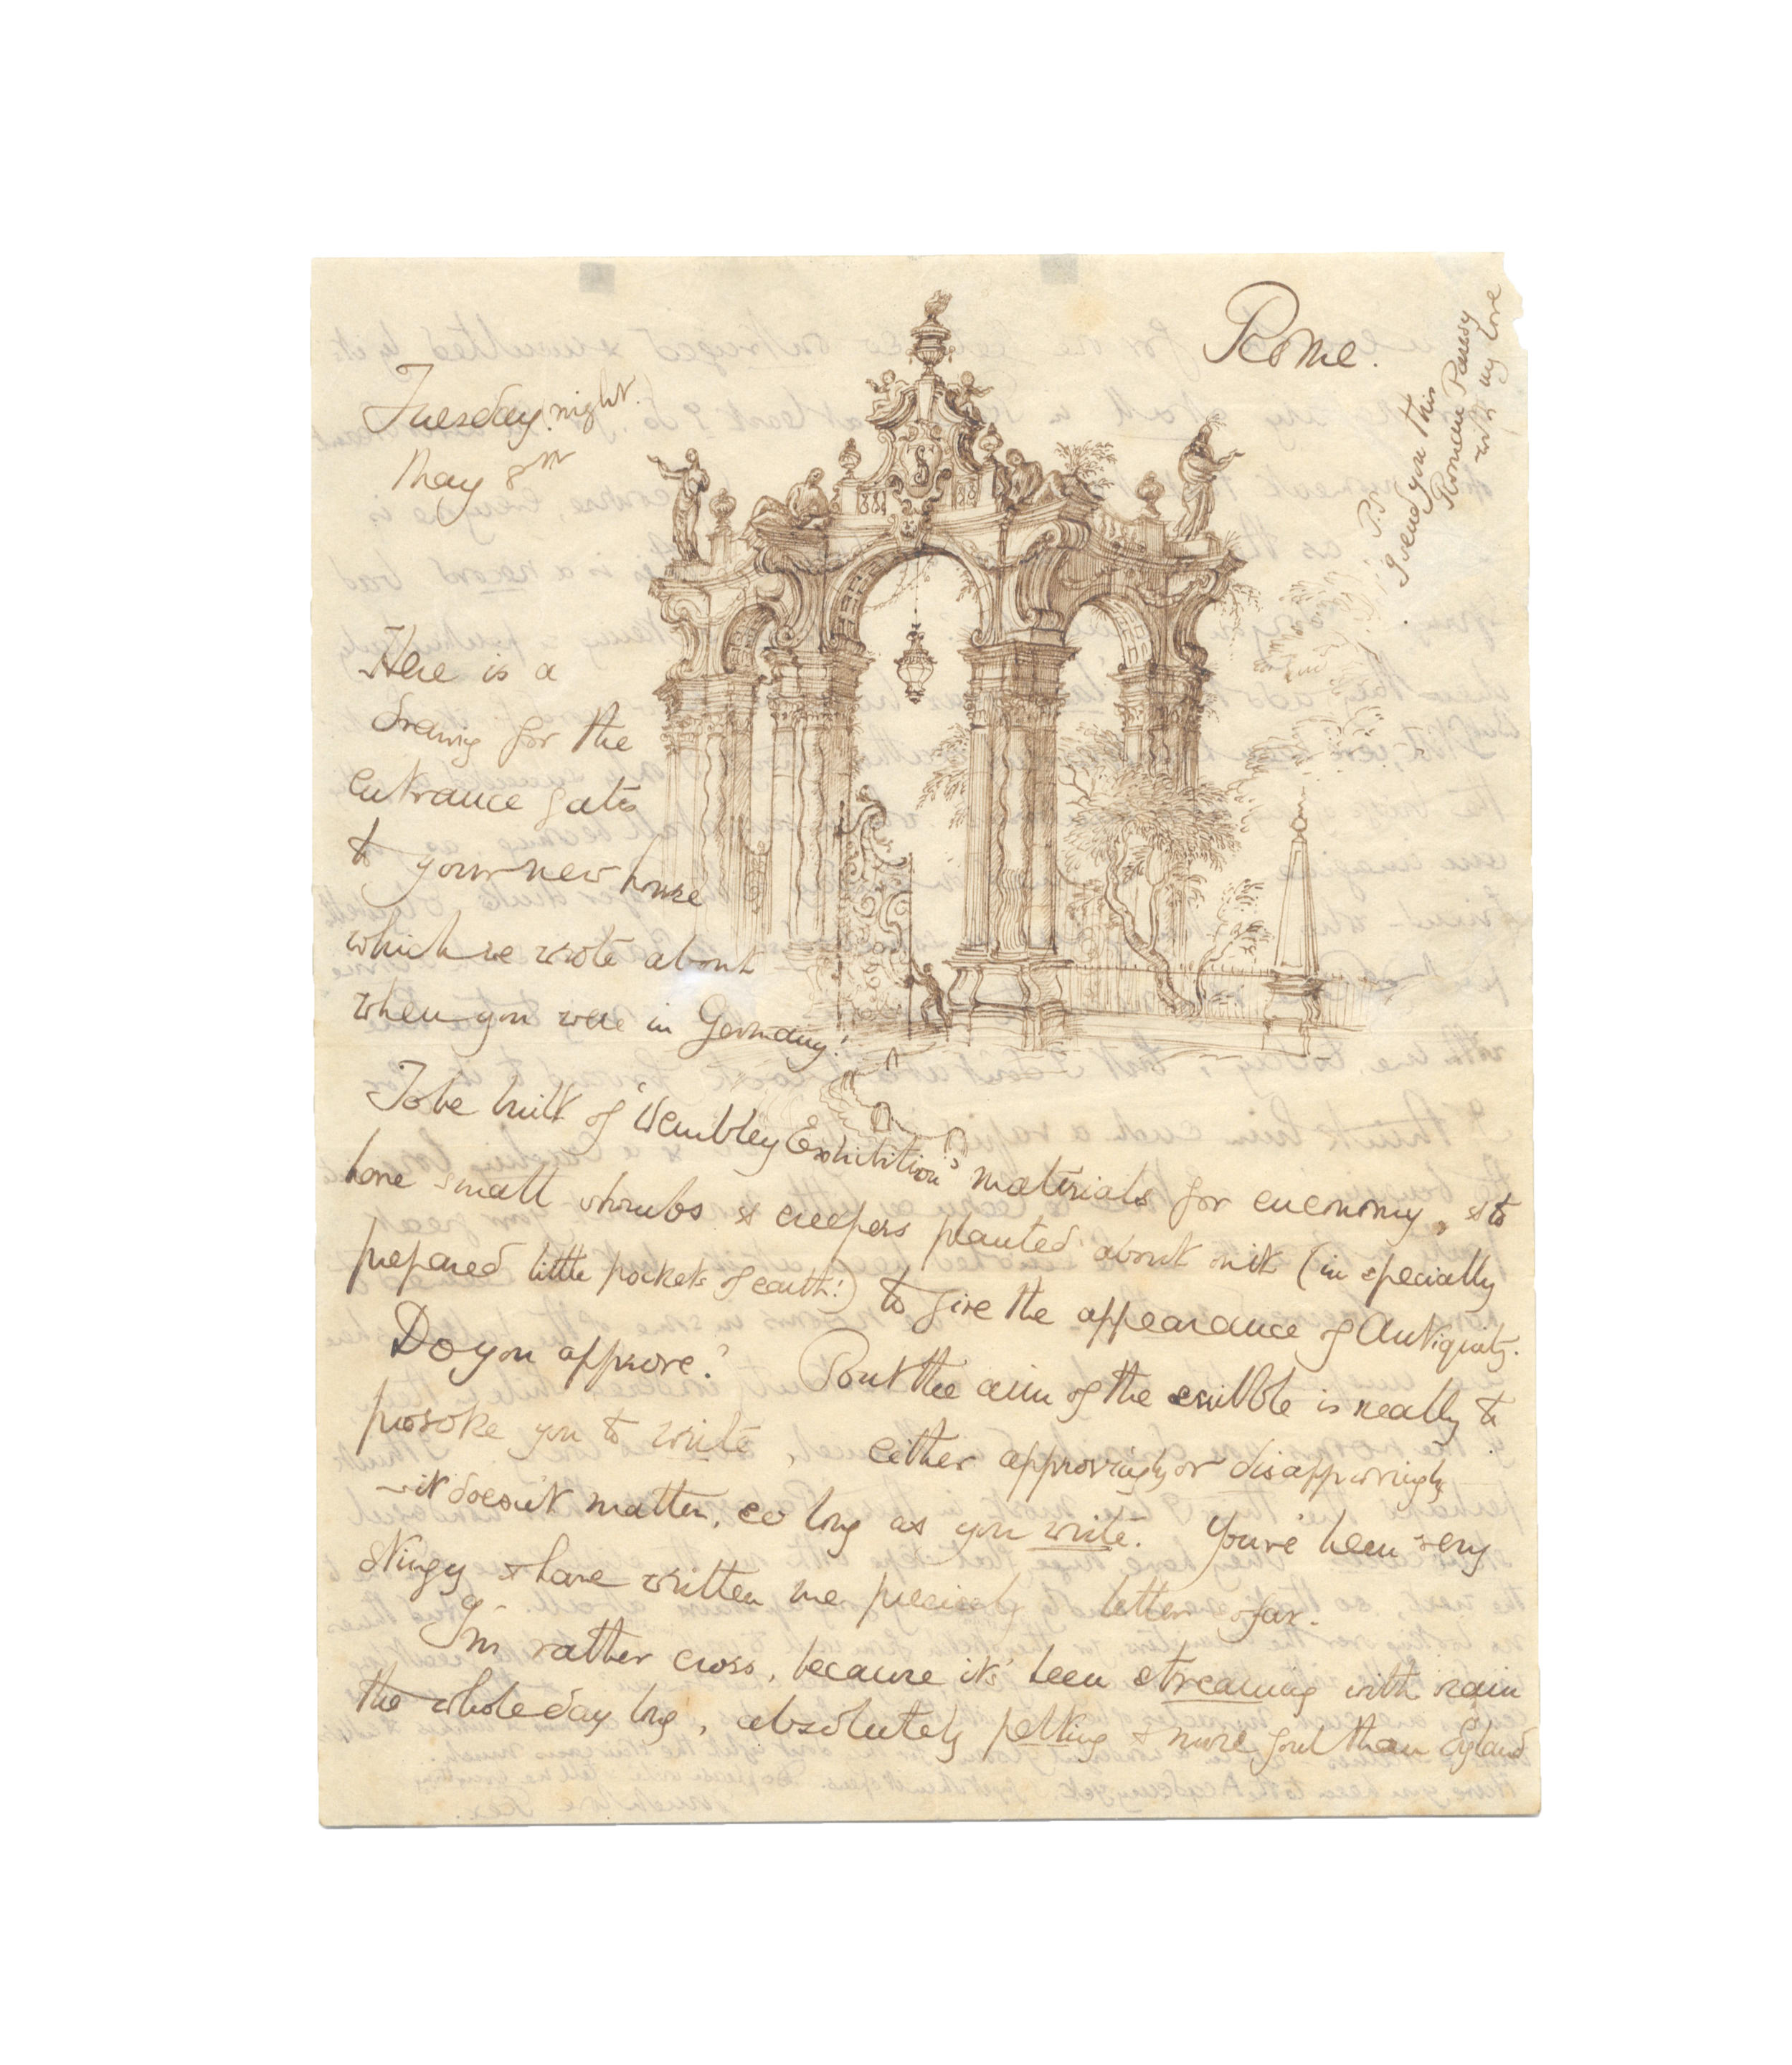 Rome.
Tuesday night.
May 8th
P.S.
I send you this
Roman Pansy
with my love
Here is a
drawing for the
entrance gates
to your new house
which we wrote about
when you were in Germany!
To be built of 'Wembley Exhibition' materials for euconomy, & to
have small shrubs & creepers planted about on it (in specially
prepared little pockets of earth!) to give the appearance of Antiquity.
Do you approve? But the aim of the scribble is really to
provoke you to write, either approvingly or disapprovingly
– it doesn't matter, so long as you write. You've been very
stingy & have written me precisely letter so far.
I'm rather cross, because it's been streaming with rain
the whole day long, absolutely pelting & more foul than England